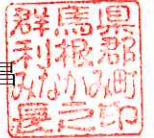 群馬県
利根郡
みなかみ町
長之印